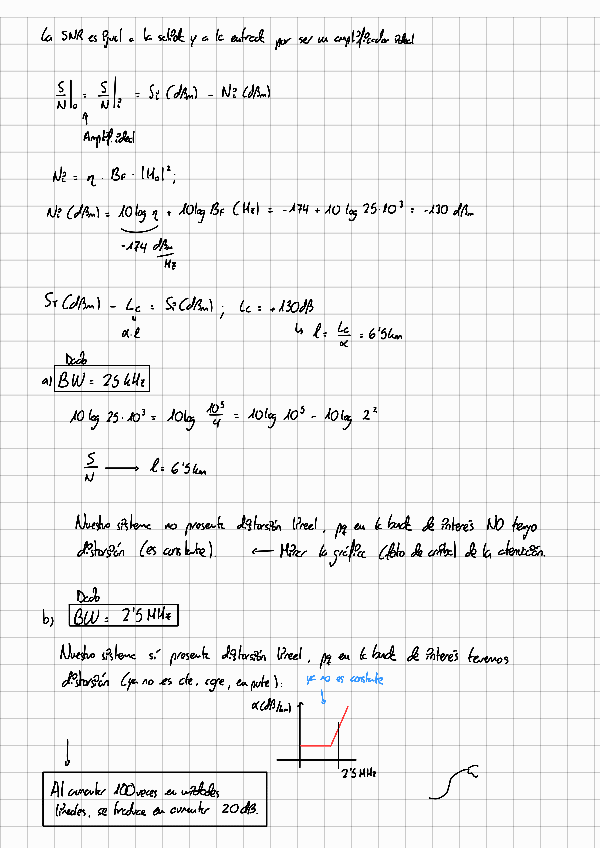 La SNR es igual a la salida y a la entrada por ser un amplificador ideal
S/N|o = S/N|i = Si (dBm) - Ni (dBm)
Amplif. ideal
Ni = η · BF · |Ho|²;
Ni (dBm) = 10 log η + 10 log BF (Hz) = -174 + 10 log 25·10³ = -130 dBm
-174 dBm/Hz
ST (dBm) - Lc = Si (dBm) ; Lc = +130 dB
α·l
↳ l = Lc/α = 6'5 km
Dado
a) BW = 25 kHz
10 log 25·10³ = 10 log 10⁵/4 = 10 log 10⁵ - 10 log 2²
S/N → l = 6'5 km
Nuestro sistema no presenta distorsión lineal, pq en la banda de interés NO tengo
distorsión (es constante). ← Mirar la gráfica (dato de entrada) de la atenuación.
Dado
b) BW = 2'5 MHz
Nuestro sistema sí presenta distorsión lineal, pq en la banda de interés tenemos
distorsión (ya no es cte, en parte):
ya no es constante
α (dB/km)
2'5 MHz
Al aumentar 100 veces en unidades
lineales, se traduce en aumentar 20 dB.